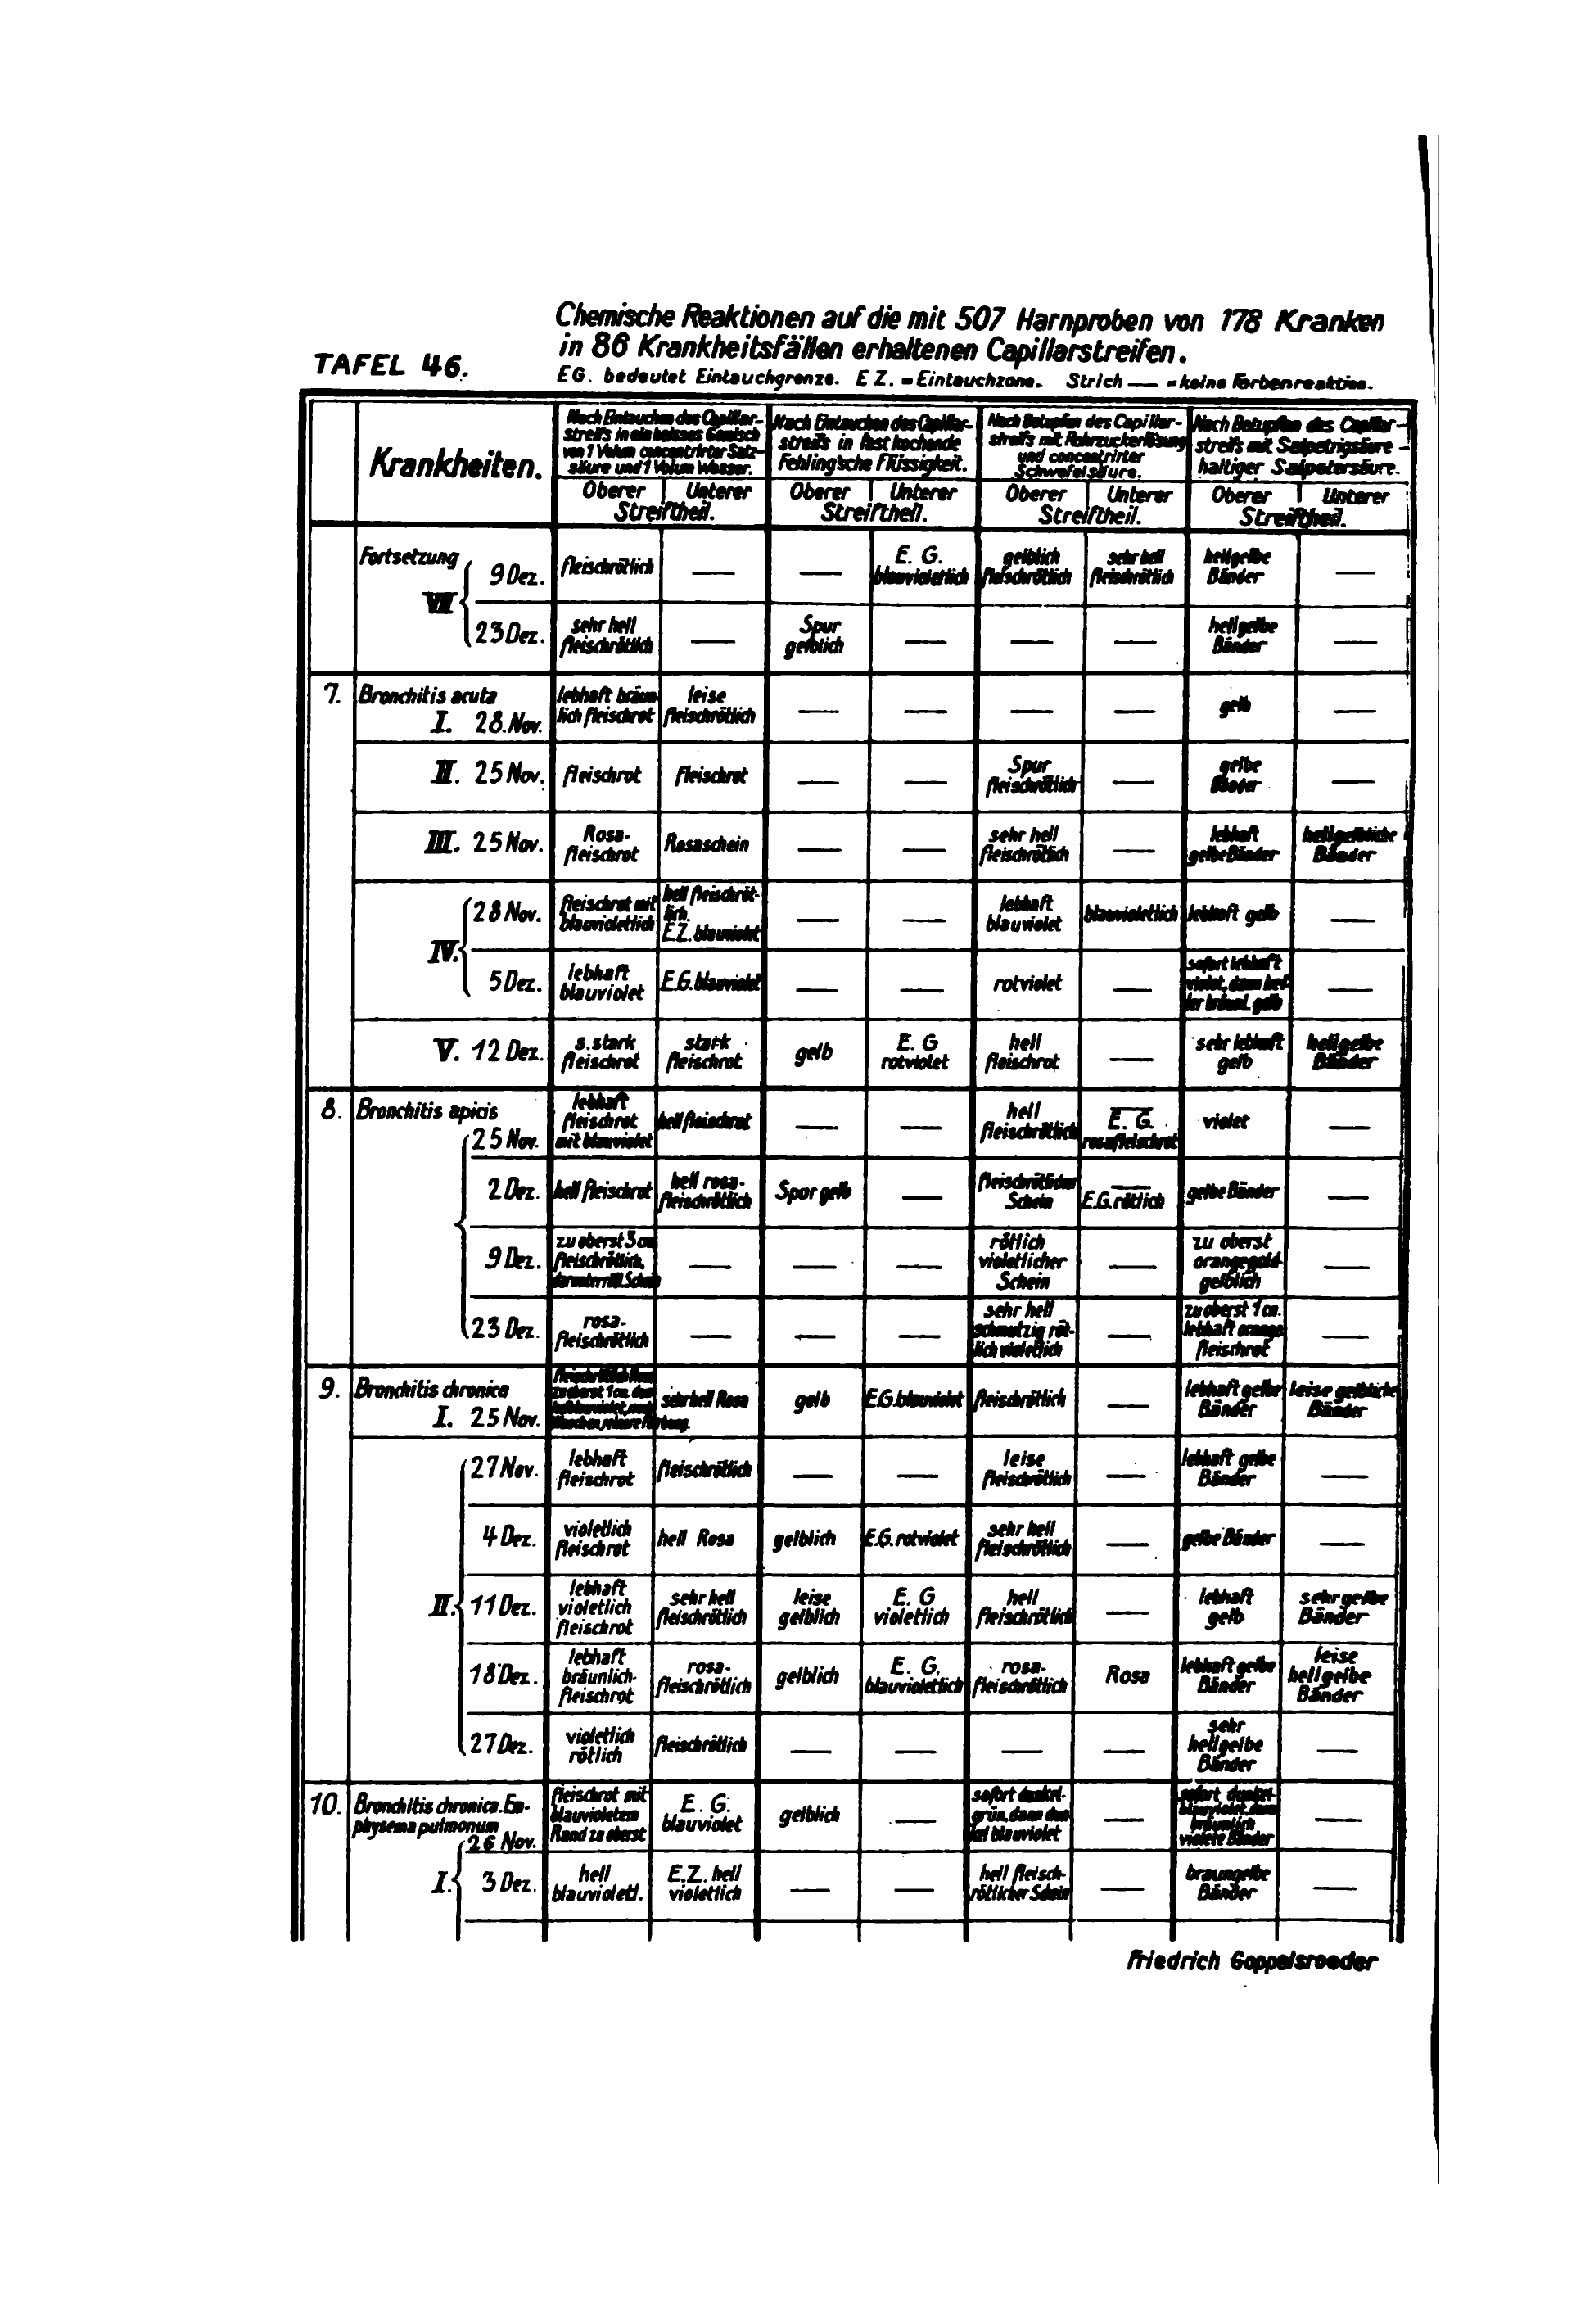 Chemische Reaktionen auf die mit 507 Harnproben von 178 Kranken
in 86 Krankheitsfällen erhaltenen Capillarstreifen.
TAFEL 46.
EG. bedeutet Eintauchgrenze. E Z. = Eintauchzone. Strich — = keine Farbenreaktion.
Krankheiten.
Nach Eintauchen des Capillar-
streifs in ein heisses Gemisch
von 1 Volum concentrirter Salz-
säure und 1 Volum Wasser.
Nach Eintauchen des Capillar-
streifs in fast kochende
Fehling'sche Flüssigkeit.
Nach Betupfen des Capillar-
streifs mit Rohrzuckerlösung
und concentrirter
Schwefelsäure.
Nach Betupfen des Capillar-
streifs mit Salpetrigsäure-
haltiger Salpetersäure.
Oberer Unterer Oberer Unterer Oberer Unterer Oberer Unterer
Streiftheil. Streiftheil. Streiftheil. Streiftheil.
Fortsetzung
VII
9 Dez. fleischrötlich — — E. G. blauvioletlich gelblich fleischrötlich sehr hell fleischrötlich hellgelbe Bänder —
23 Dez. sehr hell fleischrötlich — Spur gelblich — — — hellgelbe Bänder —
7. Bronchitis acuta
I. 28. Nov. lebhaft bräunlich fleischrot leise fleischrötlich — — — — gelb —
II. 25 Nov. fleischrot fleischrot — — Spur fleischrötlich — gelbe Bänder —
III. 25 Nov. Rosa-fleischrot Rosaschein — — sehr hell fleischrötlich — lebhaft gelbe Bänder hellgelbliche Bänder
IV.
28 Nov. fleischrot mit blauvioletlich hell fleischrötlich. E.Z. blauviolet — — lebhaft blauviolet blauvioletlich lebhaft gelb —
5 Dez. lebhaft blauviolet E.G. blauviolet — — rotviolet — sofort lebhaft violet, dann gelb
V. 12 Dez. s. stark fleischrot stark fleischrot gelb E. G rotviolet hell fleischrot — sehr lebhaft gelb hellgelbe Bänder
8. Bronchitis apicis
25 Nov. lebhaft fleischrot mit blauviolet hell fleischrot — — hell fleischrötlich — E. G. rosafleischrot violet —
2 Dez. hell fleischrot hell rosa-fleischrötlich Spur gelb — fleischrötlicher Schein — E.G. rötlich gelbe Bänder —
9 Dez. zu oberst 3 cm fleischrötlich, — — — rötlich violetlicher Schein — zu oberst orangegold-gelblich —
23 Dez. rosa-fleischrötlich — — — sehr hell schmutzig röt-lich violetlich — zu oberst 1 cm. lebhaft orange fleischrot —
9. Bronchitis chronica
I. 25 Nov. zu oberst 1 cm. sehr hell Rosa gelb E.G. blauviolet fleischrötlich — lebhaft gelbe Bänder leise gelbliche Bänder
II.
27 Nov. lebhaft fleischrot fleischrötlich — — leise fleischrötlich — lebhaft gelbe Bänder —
4 Dez. violetlich fleischrot hell Rosa gelblich E.G. rotviolet sehr hell fleischrötlich — gelbe Bänder —
11 Dez. lebhaft violetlich fleischrot sehr hell fleischrötlich leise gelblich E. G violetlich hell fleischrötlich — lebhaft gelb sehr gelbe Bänder
18 Dez. lebhaft bräunlich-fleischrot rosa-fleischrötlich gelblich E. G. blauvioletlich rosa-fleischrötlich Rosa lebhaft gelbe Bänder leise hellgelbe Bänder
27 Dez. violetlich rötlich fleischrötlich — — — — sehr hellgelbe Bänder —
10. Bronchitis chronica. Em-
physema pulmonum
I.
26 Nov. fleischrot mit blauvioletem Rand zu oberst E. G. blauviolet gelblich — sofort dunkel-grün, dann dun-kel blauviolet — sofort dunkel-blauviolet, dann bräunlich violete Bänder —
3 Dez. hell blauvioletl. E.Z. hell violetlich — — hell fleisch-rötlicher Schein — braungelbe Bänder —
Friedrich Goppelsroeder